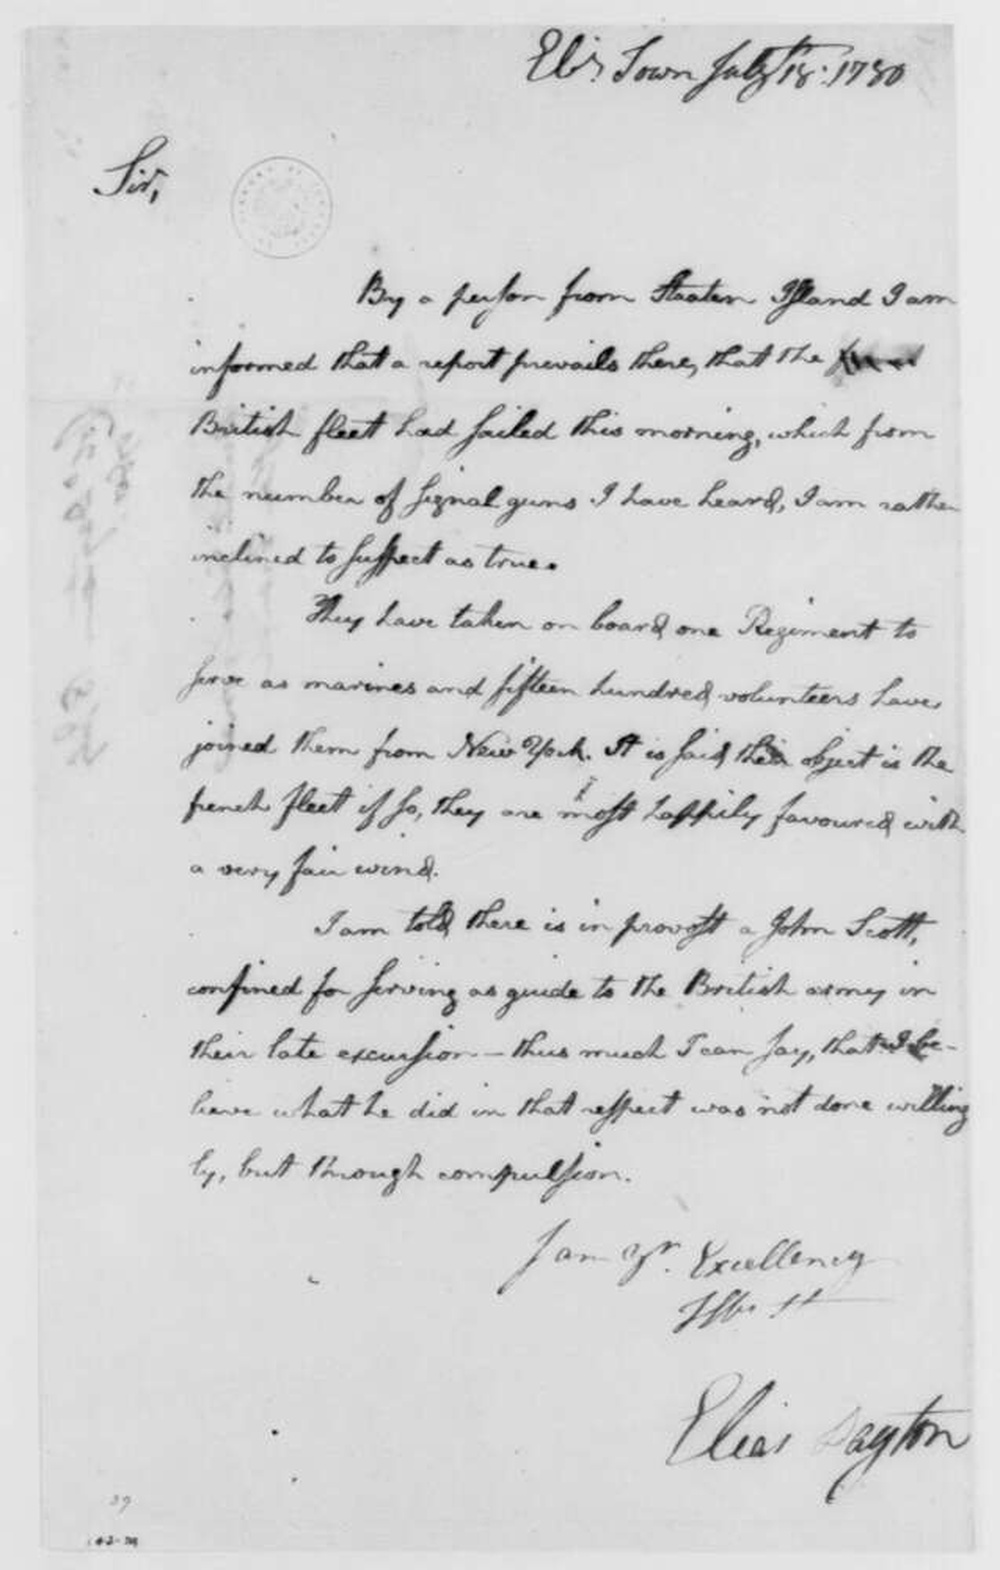 Eliz. Town July 18th. 1780
Sir,
By a person from Staaten Island I am
informed that a report prevails there, that the
British fleet had sailed this morning, which from
the number of signal guns I have heard, I am rather
inclined to suspect as true.
They have taken on board one Regiment to
serve as marines and fifteen hundred volunteers have
joined them from New York. It is said their object is the
french fleet if so, they are most happily favoured with
a very fair wind.
I am told there is in provost a John Scott,
confined for serving as guide to the British army in
their late excursion — thus much I can say, that I be-
lieve what he did in that respect was not done willing
ly, but through compulsion.
I am Yr. Excellency
Elias Dayton
39